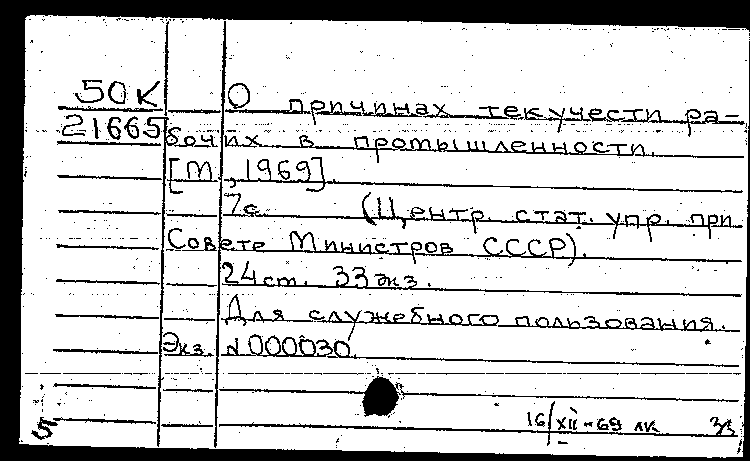 50К О причинах текучести ра-
21665 бочих в промышленности.
[М, 1969].
7с. (Центр. стат. упр. при
Совете Министров СССР).
24 ст. 33 экз.
Для служебного пользования.
Экз. N000030.
16/XII-69 лк
5